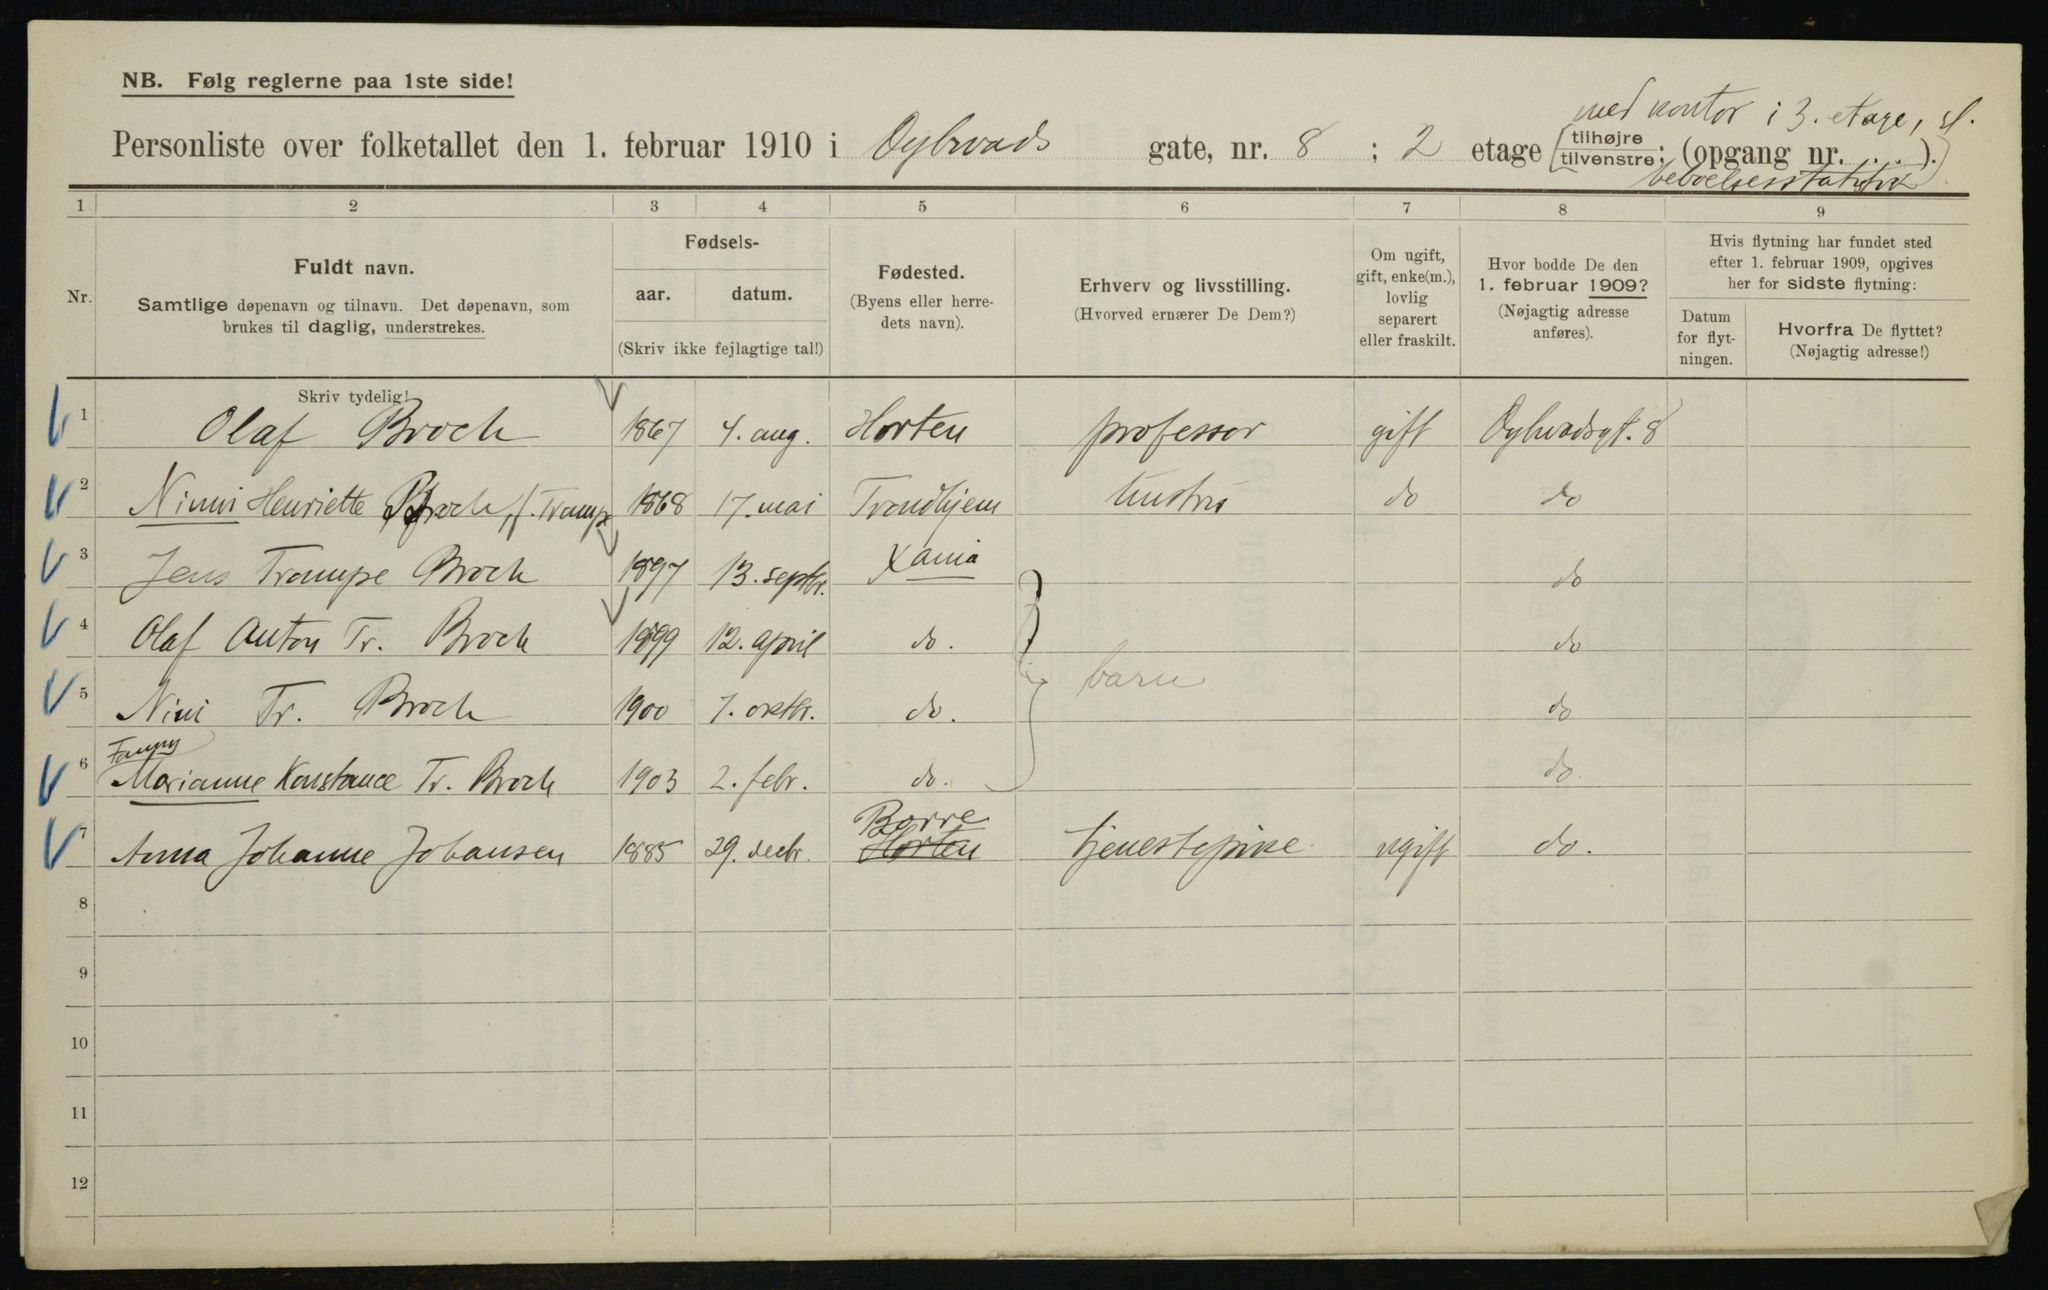 NB. Følg reglerne paa 1ste side!
med kontor i 3. etage, sl.
Personliste over folketallet den 1. februar 1910 i Oylvads gate, nr. 8 ; 2 etage [tilhøjre tilvenstre; (opgang nr. . . ).
1 2 3 4 5 6 7 8 9
Nr.
Fuldt navn.
Samtlige døpenavn og tilnavn. Det døpenavn, som
brukes til daglig, understrekes.
Fødsels-
aar. datum.
(Skriv ikke fejlagtige tal!)
Fødested.
(Byens eller herre-
dets navn).
Erhverv og livsstilling.
(Hvorved ernærer De Dem?)
Om ugift,
gift, enke(m.),
lovlig
separert
eller fraskilt.
Hvor bodde De den
1. februar 1909?
(Nøjagtig adresse
anføres).
Hvis flytning har fundet sted
efter 1. februar 1909, opgives
her for sidste flytning:
Datum
for flyt-
ningen.
Hvorfra De flyttet?
(Nøjagtig adresse!)
Skriv tydelig!
1 Olaf Broch 1867 4. aug. Horten professor gift Oylvadsgt. 8
2 Ninni Henriette Broch, f. Trampe 1868 17. mai Trondhjem hustru do do
3 Jens Trampe Broch 1897 13. septbr. Xania do
4 Olaf Anton Tr. Broch 1899 12. april do. do
barn
5 Nini Tr. Broch 1900 7. oktbr. do. do
Fanny
6 Marianne Konstance Tr. Broch 1903 2. febr. do. do.
Borre
7 Anna Johanne Johansen 1885 29. decbr. Horten tjenestepike ugift do.
8
9
10
11
12